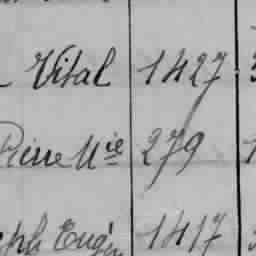 Vital 1427
Pierre Mie 279
eph Eug 1417